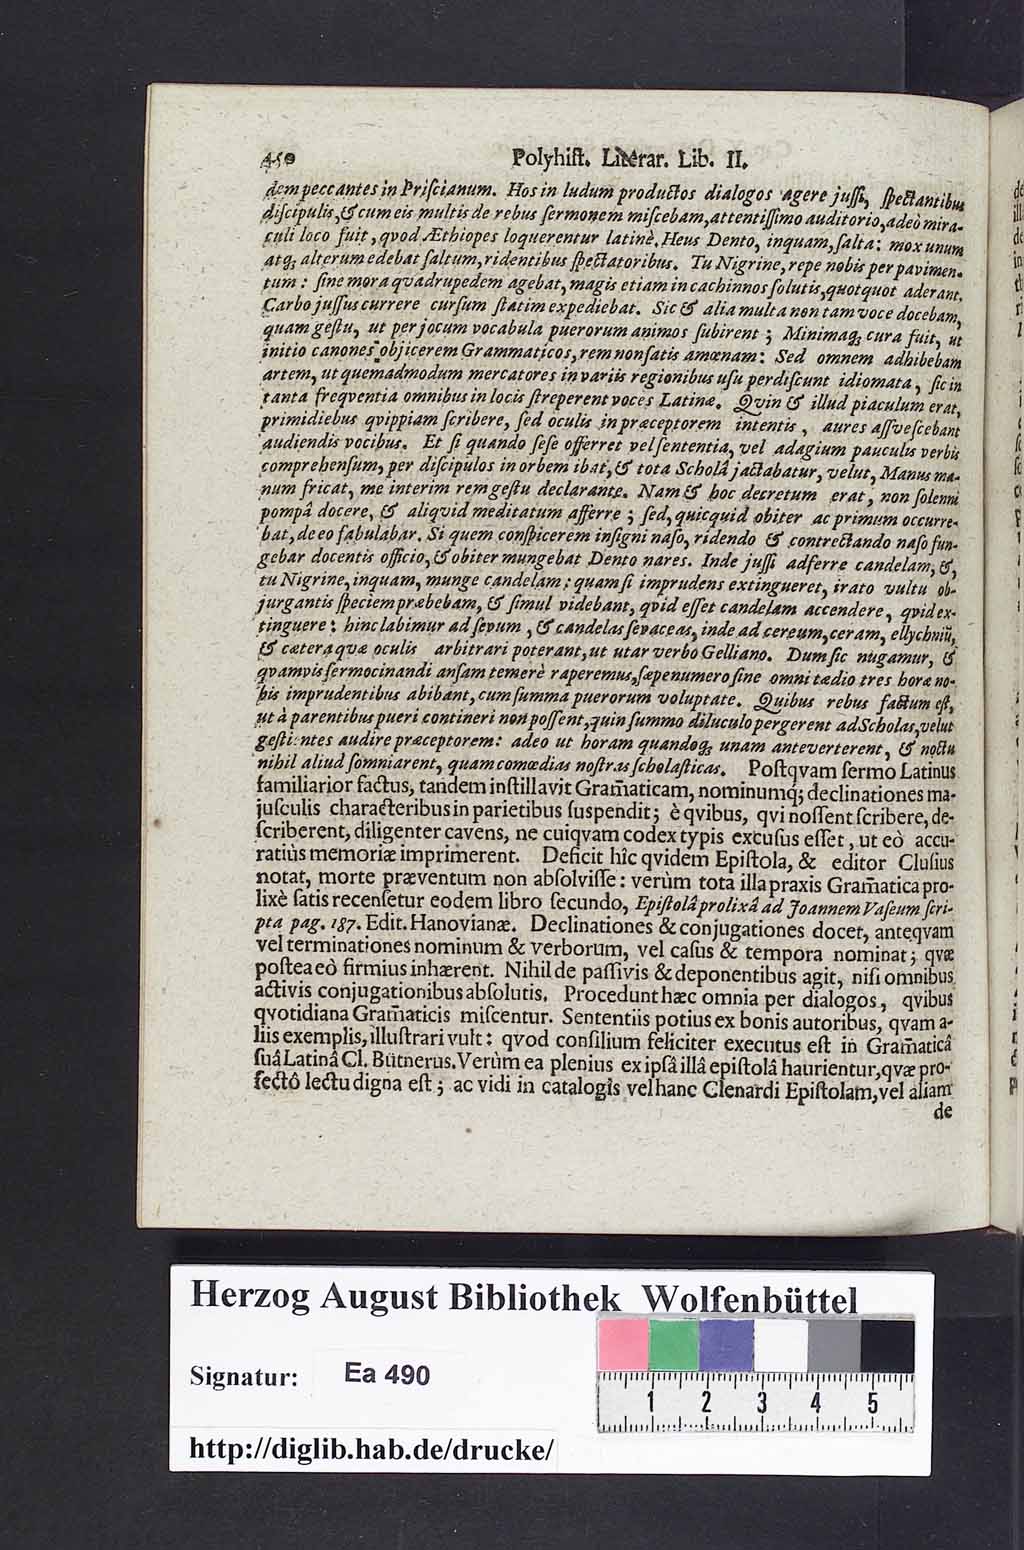 450 Polyhiſt. Literar. Lib. II.
dem peccantes in Priſcianum. Hos in ludum productos dialogos agere juſſi, ſpectantibus
diſcipulis, & cum eis multis de rebus ſermonem miſcebam, attentiſſimo auditorio, adeò mira-
culi loco fuit, qvod Æthiopes loquerentur latinè. Heus Dento, inquam, ſalta: mox unum
atq; alterum edebat ſaltum, ridentibus ſpectatoribus. Tu Nigrine, repe nobis per pavimen-
tum: ſine mora qvadrupedem agebat, magis etiam in cachinnos ſolutis, quotquot aderant.
Carbo juſſus currere curſum ſtatim expediebat. Sic & alia multa non tam voce docebam,
quam geſtu, ut per jocum vocabula puerorum animos ſubirent; Minimaq; cura fuit, ut
initio canones objicerem Grammaticos, rem non ſatis amœnam: Sed omnem adhibebam
artem, ut quemadmodum mercatores in variis regionibus uſu perdiſcunt idiomata, ſic in
tanta freqventia omnibus in locis ſtreperent voces Latinæ. Qvin & illud piaculum erat,
primi diebus qvippiam ſcribere, ſed oculis in præceptorem intentis, aures aſſveſcebant
audiendis vocibus. Et ſi quando ſeſe offerret vel ſententia, vel adagium pauculis verbis
comprehenſum, per diſcipulos in orbem ibat, & tota Scholâ jactabatur, velut, Manus ma-
num fricat, me interim rem geſtu declarante. Nam & hoc decretum erat, non ſolenni
pompâ docere, & aliqvid meditatum afferre; ſed, quicquid obiter ac primum occurre-
bat, de eo fabulabar. Si quem conſpicerem inſigni naſo, ridendo & contrectando naſo fun-
gebar docentis officio, & obiter mungebat Dento nares. Inde juſſi adferre candelam, &,
tu Nigrine, inquam, munge candelam: quam ſi imprudens extingueret, irato vultu ob-
jurgantis ſpeciem præbebam, & ſimul videbant, qvid eſſet candelam accendere, qvid ex-
tinguere: hinc labimur ad ſevum, & candelas ſevaceas, inde ad cereum, ceram, ellychniũ,
& cætera quæ oculis arbitrari poterant, ut utar verbo Gelliano. Dum ſic nugamur, &
qvamvis ſermocinandi anſam temerè raperemus, ſæpenumero ſine omni tædio tres horæ no-
bis imprudentibus abibant, cum ſumma puerorum voluptate. Quibus rebus factum eſt,
ut à parentibus pueri contineri non poſſent, quin ſummo diluculo pergerent ad Scholas, velut
geſtientes audire præceptorem: adeo ut horam quandoq; unam anteverterent, & noctu
nihil aliud ſomniarent, quam comœdias noſtras ſcholaſticas. Poſtqvam ſermo Latinus
familiarior factus, tandem inſtillavit Gram̃aticam, nominumq; declinationes ma-
juſculis characteribus in parietibus ſuspendit; è qvibus, qvi noſſent ſcribere, de-
ſcriberent, diligenter cavens, ne cuiqvam codex typis excuſus eſſet, ut eò accu-
ratiùs memoriæ imprimerent. Deficit hîc qvidem Epiſtola, & editor Cluſius
notat, morte præventum non abſolviſſe: verùm tota illa praxis Gram̃atica pro-
lixè ſatis recenſetur eodem libro ſecundo, Epiſtolâ prolixâ ad Joannem Vaſeum ſcri-
pta pag. 187. Edit. Hanovianæ. Declinationes & conjugationes docet, anteqvam
vel terminationes nominum & verborum, vel caſus & tempora nominat; qvæ
poſtea eò firmius inhærent. Nihil de paſſivis & deponentibus agit, niſi omnibus
activis conjugationibus abſolutis. Procedunt hæc omnia per dialogos, qvibus
qvotidiana Gram̃aticis miſcentur. Sententiis potius ex bonis autoribus, qvam a-
liis exemplis, illuſtrari vult: qvod conſilium feliciter executus eſt in Gram̃aticâ
ſuâ Latinâ Cl. Bütnerus. Verùm ea plenius ex ipſâ illâ epiſtolâ haurientur, qvæ pro-
fectô lectu digna eſt; ac vidi in catalogis vel hanc Clenardi Epiſtolam, vel aliam
de
Herzog August Bibliothek Wolfenbüttel
Signatur: Ea 490
1 2 3 4 5
http://diglib.hab.de/drucke/